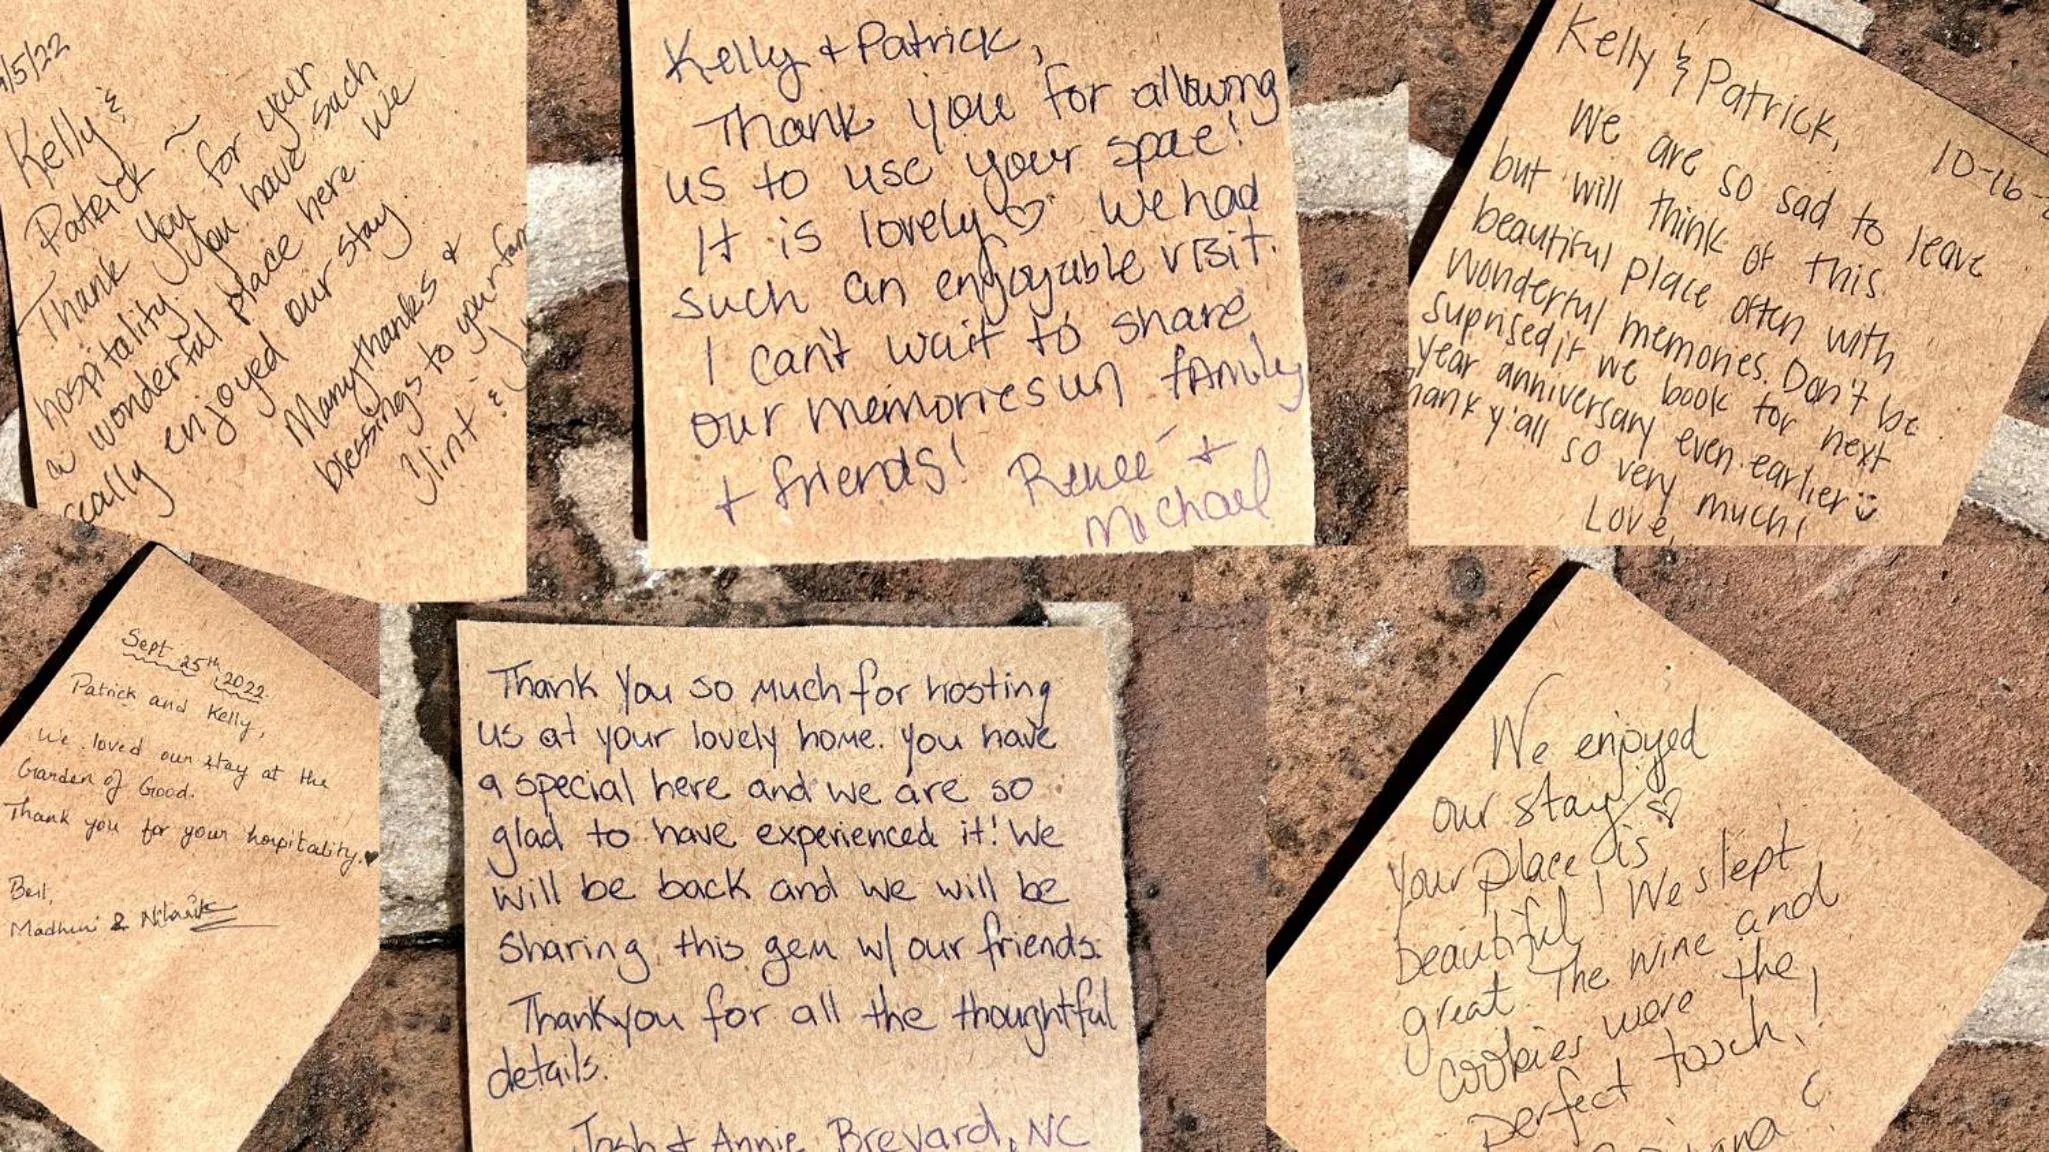 /5/22
Kelly &
Patrick ~
Thank you for your
hospitality. You have such
a wonderful place here. We
really enjoyed our stay.
Many thanks &
blessings to your fam
Clint &
Kelly + Patrick,
Thank you for allowing
us to use your space!
It is lovely ♡ We had
such an enjoyable visit.
I can't wait to share
our memories w/ family
+ friends! Reneé +
Michael
Kelly & Patrick,
10-16-
We are so sad to leave
but will think of this
beautiful place often with
wonderful memories. Don't be
suprised if we book for next
year anniversary even earlier
hank y'all so very much!
Love,
Sept 25th, 2022.
Patrick and Kelly,
We loved our stay at the
Garden of Good.
Thank you for your hospitality. ♥
Best,
Madhuri &
Thank You so much for hosting
us at your lovely home. You have
a special here and we are so
glad to have experienced it! We
will be back and we will be
sharing this gem w/ our friends.
Thankyou for all the thoughtful
details.
Josh + Annie Brevard, NC
We enjoyed
our stay! ♡
Your place is
beautiful! We slept
great. The wine and
cookies were the
perfect touch!